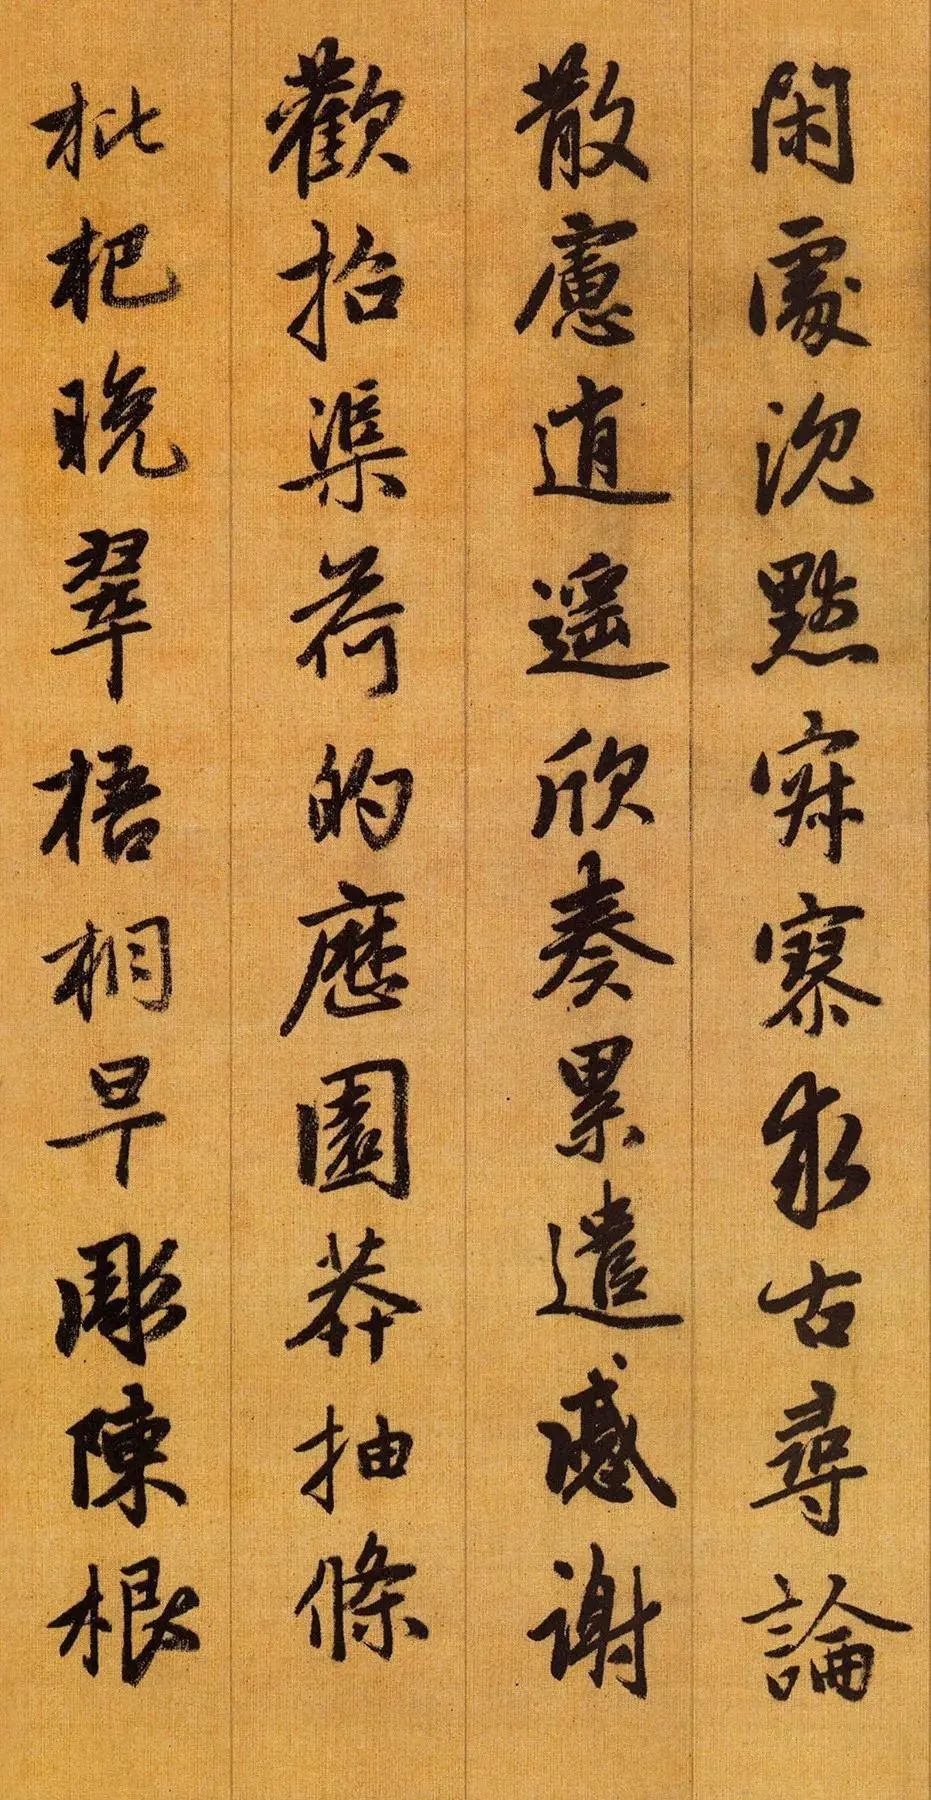 閑處沉黙寂寥求古尋論
散慮逍遥欣奏累遣慼謝
歡招渠荷的歷園莽抽條
枇杷晚翠梧桐早彫陳根